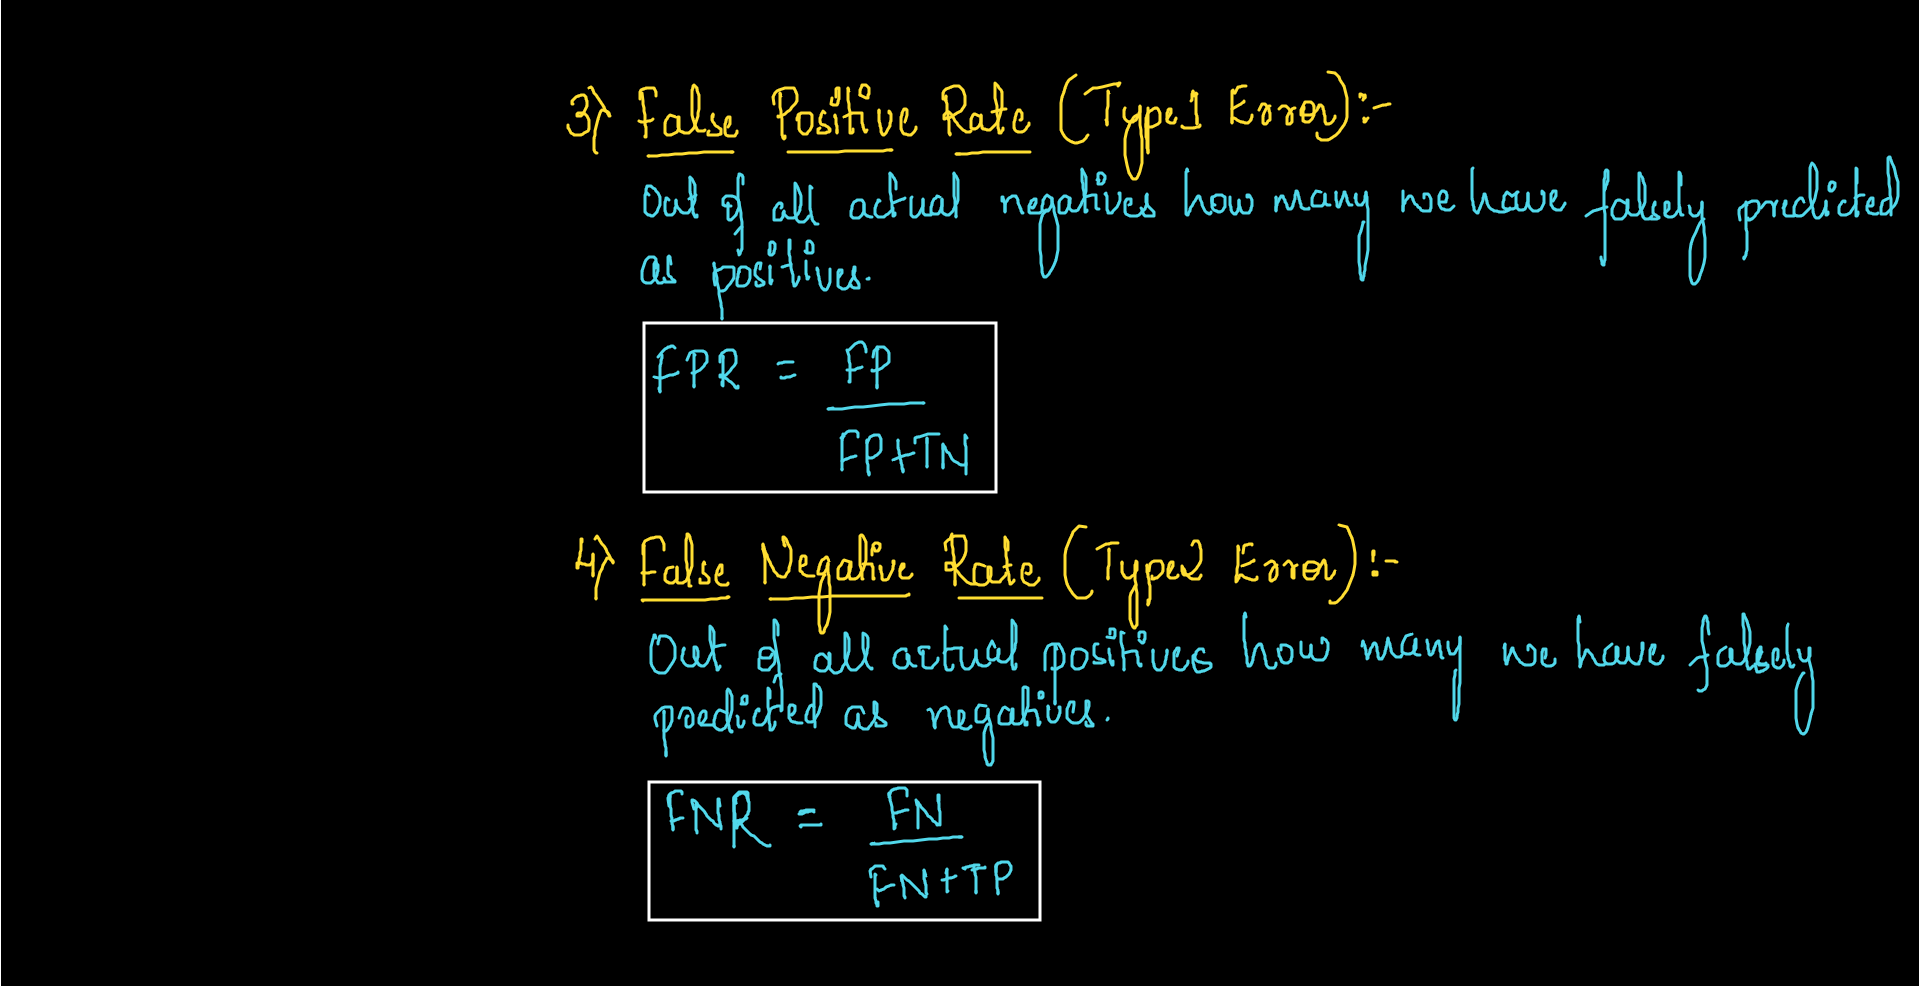 3) False Positive Rate (Type 1 Error):-
Out of all actual negatives how many we have falsely predicted
as positives.
FPR = FP
FP+TN
4) False Negative Rate (Type 2 Error):-
Out of all actual positives how many we have falsely
predicted as negatives.
FNR = FN
FN+TP